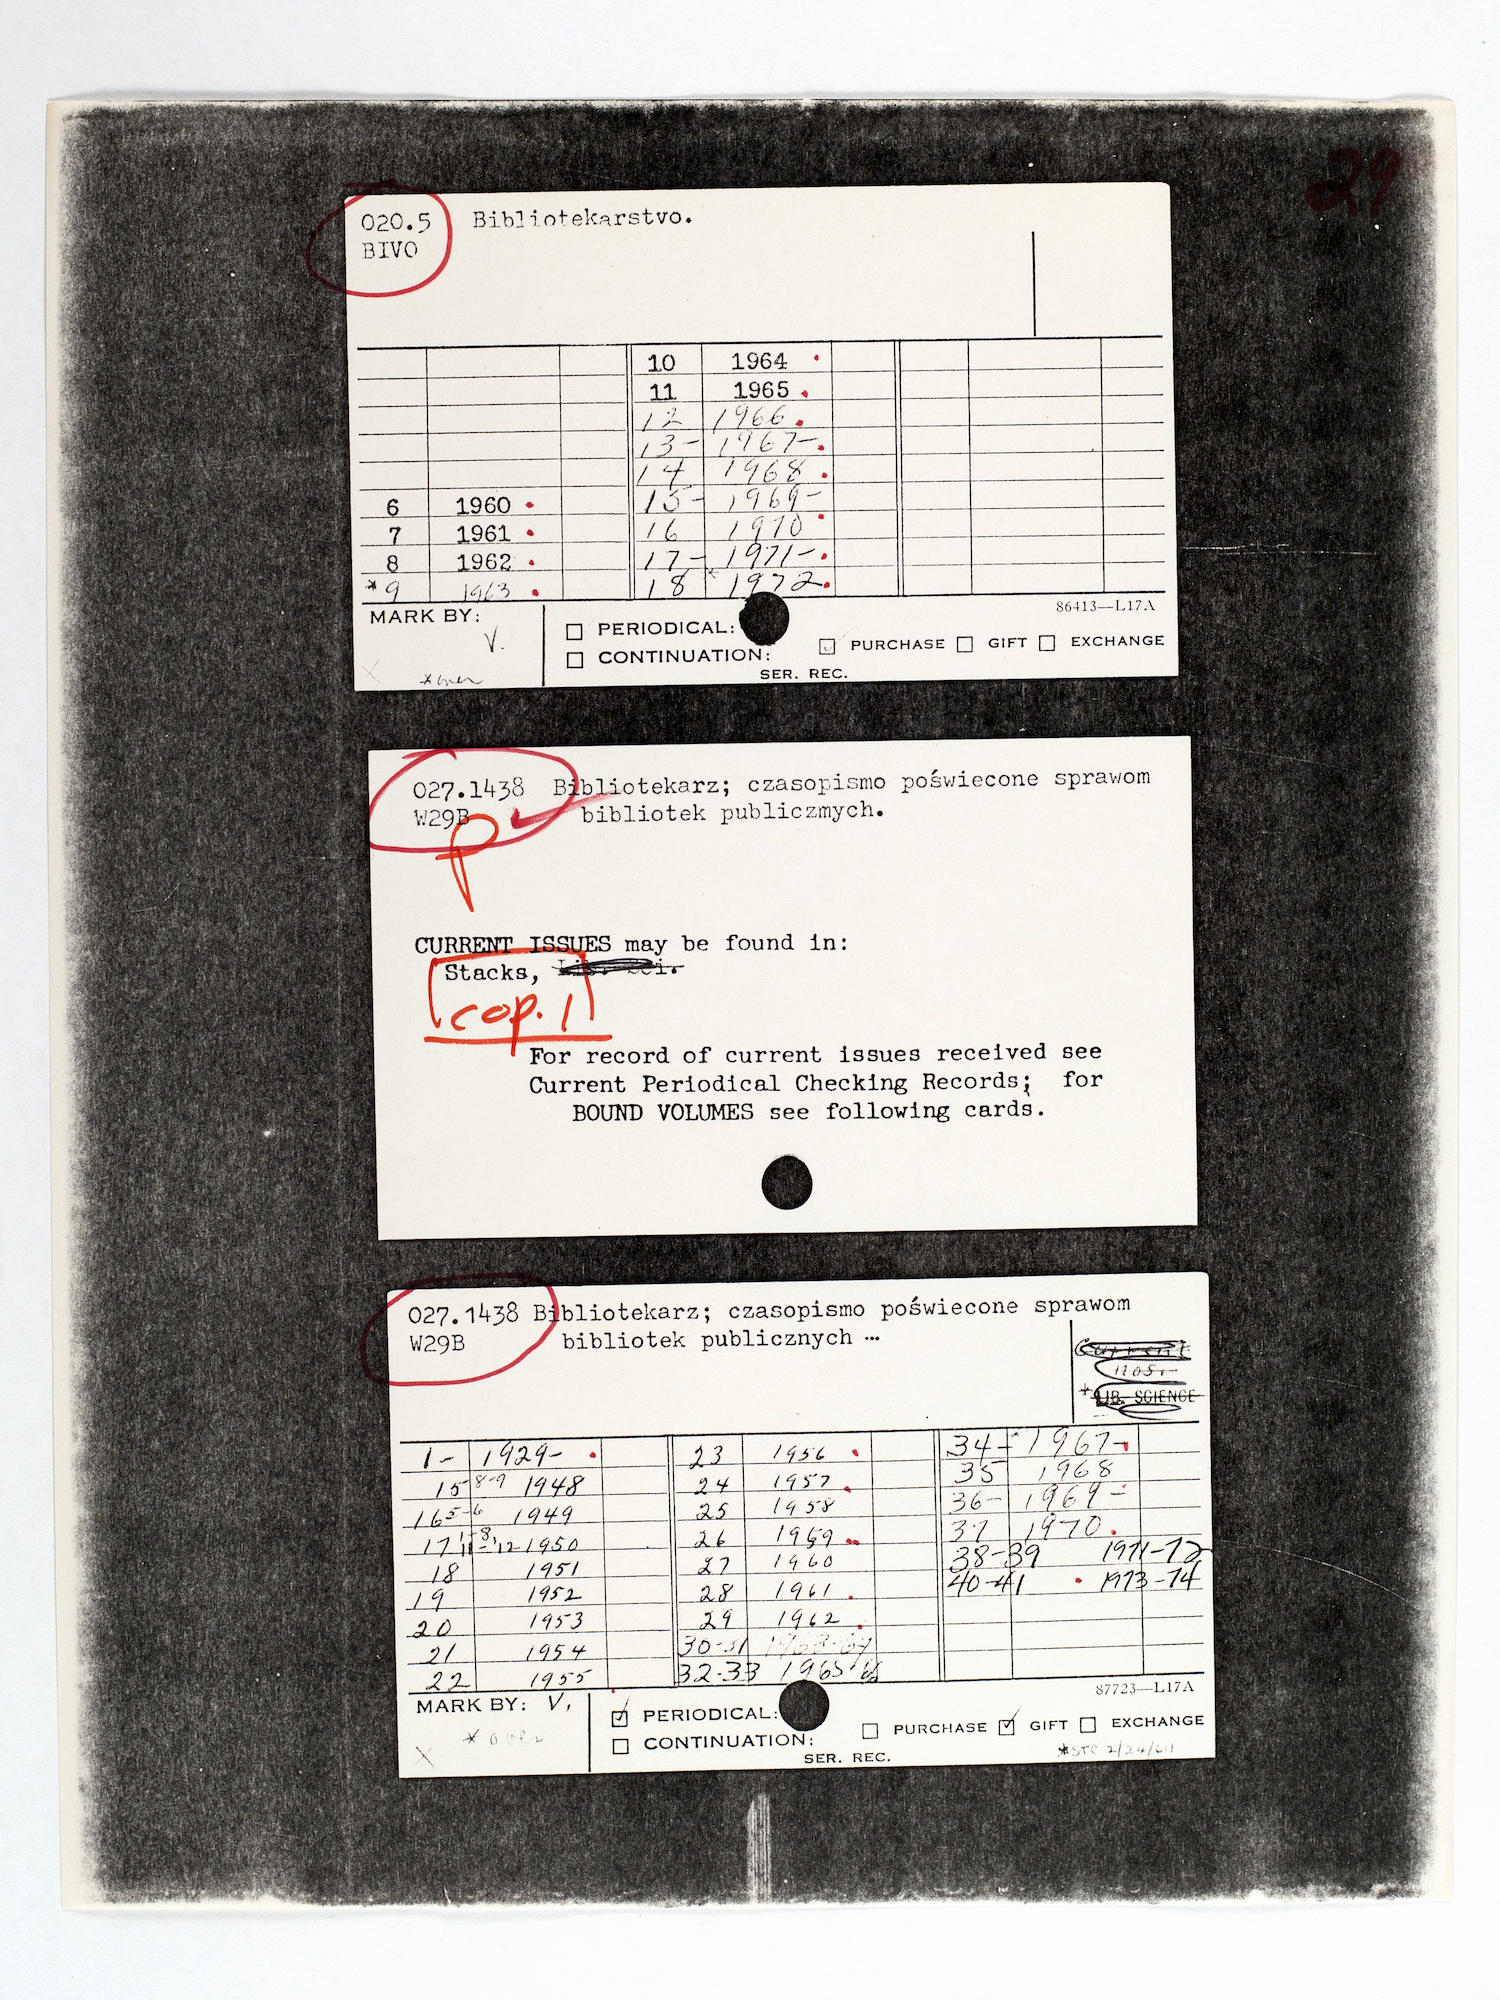 29
020.5 Bibliotekarstvo.
BIVO
10 1964
11 1965
12 1966
13- 1967-
14 1968
6 1960 15- 1969-
7 1961 16 1970
8 1962 17- 1971-
*9 1963 18 1972
MARK BY: V.
*over
PERIODICAL:
CONTINUATION:
86413—L17A
PURCHASE GIFT EXCHANGE
SER. REC.
027.1438 Bibliotekarz; czasopismo poświecone sprawom
W29B bibliotek publiczmych.
P
CURRENT ISSUES may be found in:
Stacks, Lib. Sci.
cop. 1
For record of current issues received see
Current Periodical Checking Records; for
BOUND VOLUMES see following cards.
027.1438 Bibliotekarz; czasopismo poświecone sprawom
W29B bibliotek publicznych …
Current
nos.
*LIB. SCIENCE
1- 1929- 23 1956 34- 1967-
15 8-9 1948 24 1957 35 1968
16 5-6 1949 25 1958 36- 1969-
17 1950 26 1959 37 1970
18 1951 27 1960 38-39 1971-72
19 1952 28 1961 40-41 1973-74
20 1953 29 1962
21 1954 30-31 1963-64
22 1955 32-33 1965-66
MARK BY: V.
*over
PERIODICAL:
CONTINUATION:
87723—L17A
PURCHASE GIFT EXCHANGE
SER. REC.
*STC 2/24/64